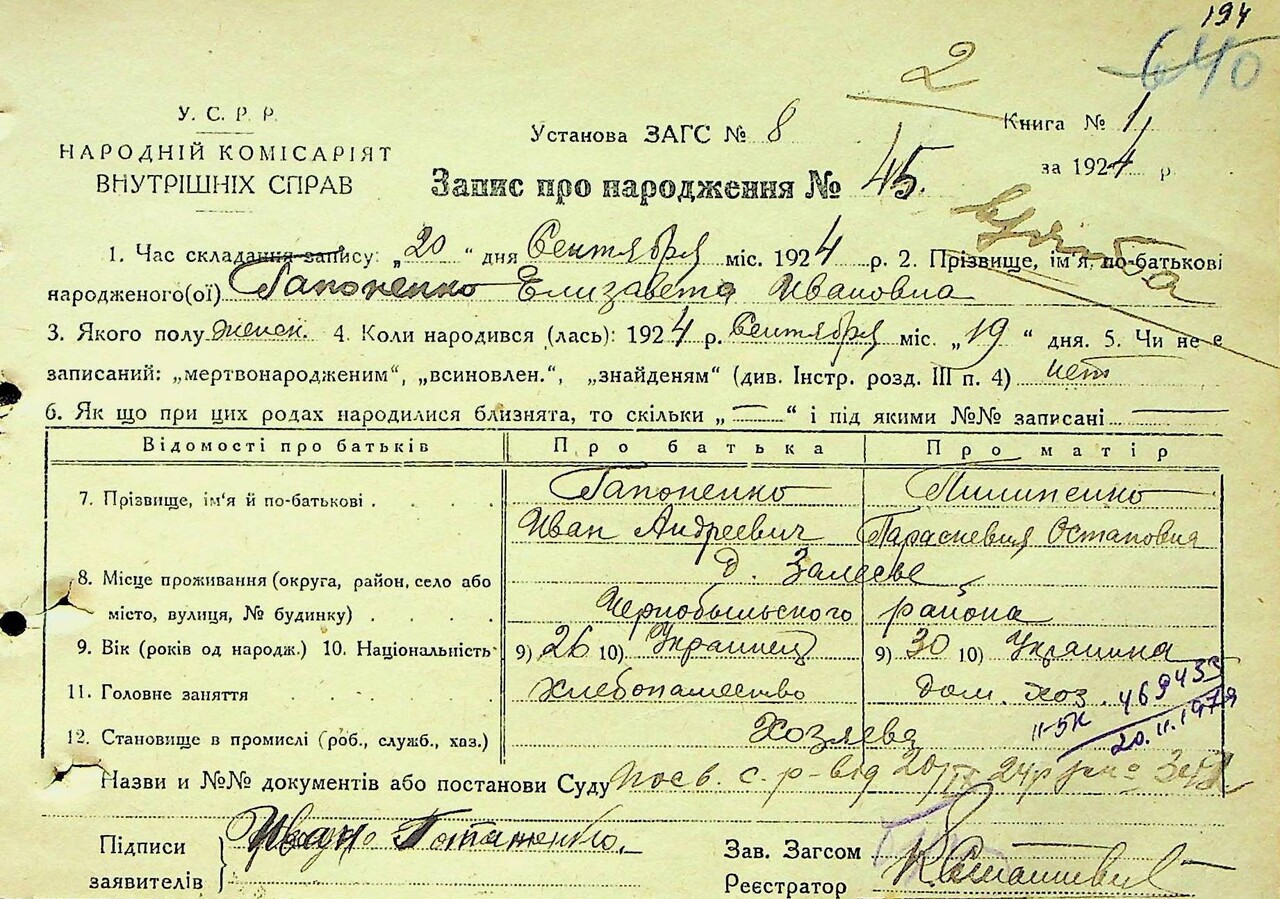 194
640
2
У. С. Р. Р.
НАРОДНІЙ КОМІСАРІЯТ
ВНУТРІШНІХ СПРАВ
Установа ЗАГС № 8
Книга № 1
за 1924 р.
Запис про народження № 45.
1. Час складання запису: „20“ дня Сентября міс. 1924 р. 2. Прізвище, ім'я, по-батькові
народженого(ої) Гапоненко Елизавета Ивановна
3. Якого полу женск. 4. Коли народився (лась): 1924 р. Сентября міс. „19“ дня. 5. Чи не є
записаний: „мертвонародженим“, „всиновлен.“, „знайденям“ (див. Інстр. розд. III п. 4) нет
6. Як що при цих родах народилися близнята, то скільки „—“ і під якими №№ записані —
Відомості про батьків Про батька Про матір
7. Прізвище, ім'я й по-батькові . . . . Гапоненко Пилипенко
Иван Андреевич Параскевия Остаповна
8. Місце проживання (округа, район, село або д. Залесье
місто, вулиця, № будинку) . . . . Чернобыльского района
9. Вік (років од народж.) 10. Національність 9) 26 10) Украинец 9) 30 10) Украинка
11. Головне заняття . . . . Хлебопашество дом. хоз.
II-БК 469433
20.11.1979
12. Становище в промислі (роб., служб., хаз.) Хозяева
Назви и №№ документів або постанови Суду Посв. с-р-від 20/IX 24р
Підписи
заявителів
Иван Гапаненко.
Зав. Загсом
Реєстратор